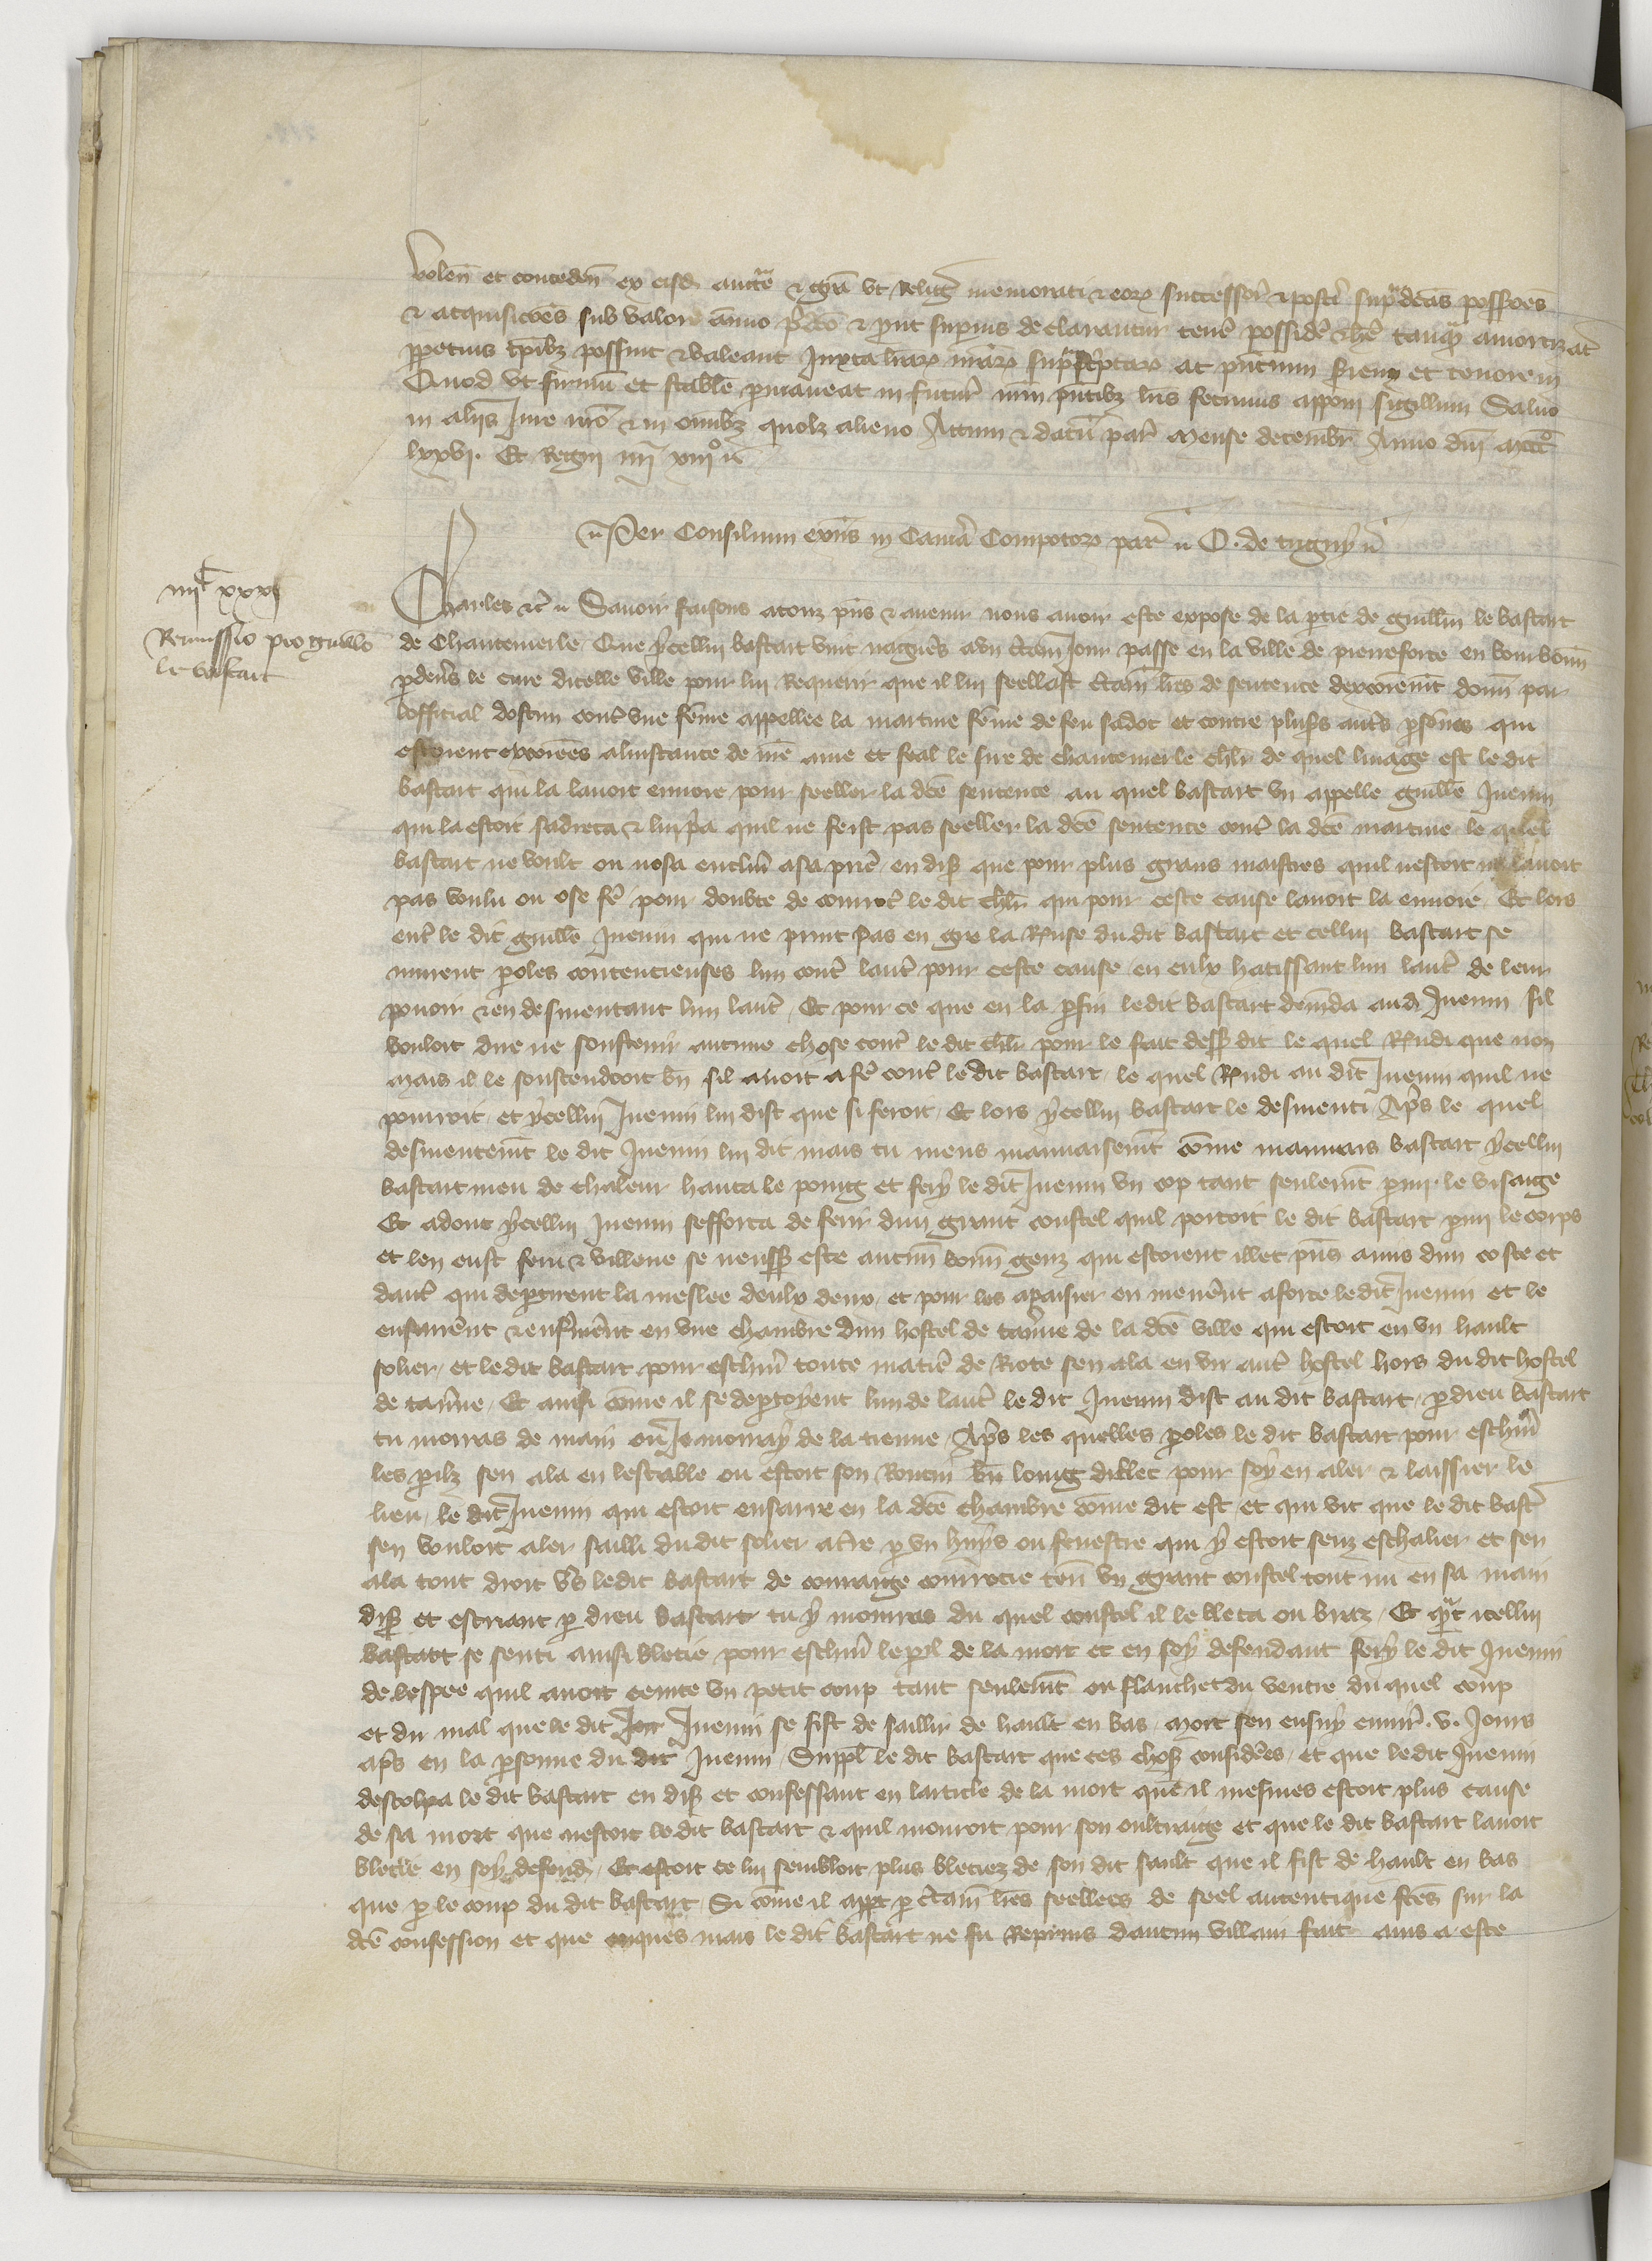 volen et conceden ex eisd auctte & gra ut relig memorati & eorum successor & posteri supradcas possessiões
& acquisiciões sub valore annuo pdco & prout superius declarantur tenere possidere & here tanquam amortizatas
perpetuis tpibz possint & valeant juxta lrarum nrarum suprascriptarum ac pntium seriem et tenorem
Quod ut firmum et stabile permaneat in futurum nrm pntibz lris fecimus apponi sigillum Salvo
in aliis Jure nro & in omibz quolz alieno Actum & datum par mense decembr Anno dni mccco
lxxvi. Et Regni nri xiiio
Per Consilium exns in Camera Compotorum par O. de trigny
iiiic xxxi
Remissio pro guillo
le bastart
Charles &c Savoir faisons a touz pns & avenir nous avoir este expose de la ptie de guillm le bastart
de Chantemerle Que ycellui bastart vint nagueres a un ctain Jour passe en la ville de pierreforte en bourbonn
pdevers le cure dicelle ville pour lui Requerir que il lui seellast ctain lres de sentence dexcoiement donn par
lofficial dostun contre une feme appellee la martine feme de feu sadot et contre plusrs autrs psones qui
estoient excoiees a linstance de nre ame et feal le sire de chantemerle chlr de quel linage est le dit
bastart qui la lavoit envoie pour seeller la dce sentence au quel bastart un appelle guille Juenin
qui la estoit sadreca & lui pria quil ne feist pas seeller la dce sentence contre la dce martine le quel
bastart ne voult ou nosa encliner a sa priere en disant que pour plus grans maistres quil nestoit ne lavoit
pas voulu ou ose fere pour doubte de courrocer le dit chlr qui pour ceste cause lavoit la envoie Et lors
entre le dit guille Juenin qui ne print pas en gre la Response du dit bastart et cellui bastart se
murent paroles contencieuses lun contre lautre pour ceste cause en eulx hatissant lun lautre de leur
povoir & en desmentant lun lautre Et pour ce que en la parfin ledit bastart demanda audit Juenin sil
vouloit dire ne soustenir aucune chose contre le dit chlr pour le fait dessus dit le quel Respondi que non
Mais il le soustendroit bien sil avoit a fere contre le dit bastart le quel Respondi au dit Juenin quil ne
pourroit et ycellui Juenin lui dist que si feroit Et lors ycellui bastart le desmenti Apres le quel
desmentement le dit Juenin lui dit mais tu mens mauvaisement come mauvais bastart ycellui
bastart meu de chaleur hauca le poing et fery le dit Juenin un cop tant seulement parmi le visaige
Et adonc ycellui Juenin sefforca de ferir dun grant coustel quil portoit le dit bastart parmi le corps
et len eust feru & villene se neussent este aucuns bonnes genz qui estoient illec pns amis dun coste et
dautre qui departirent la meslee deulx deux et pour les apaisier en menerent a force le dit Juenin et le
enserrerent & enfermerent en une chambre dun hostel de taverne de la dce ville qui estoit en un hault
solier et ledit bastart pour eschiver toute matiere de Riote sen ala en un autre hostel hors du dit hostel
de taverne Et ainsi come il se departoyent lun de lautre le dit Juenin dist au dit bastart par dieu bastart
tu morras de main ou Je morray de la tienne Apres les quelles paroles le dit bastart pour eschiver
les perilz sen ala en lestable ou estoit son Roncin bien loing dillec pour soy en aler & laissier le
lieu le dit Juenin qui estoit enserre en la dce chambre come dit est et qui vit que le dit bastart
sen vouloit aler sailli du dit solier a terre par un huys ou fenestre qui y estoit senz eschalier et sen
ala tout droit vers ledit bastart de couraige courrocie tenant un grant coustel tout nu en sa main
disant et escriant par dieu bastart tu y mourras du quel coustel il le bleca ou braz Et quant icellui
bastart se senti ainsi blecie pour eschiver le peril de la mort et en soy defendant fery le dit Juenin
de lespee quil avoit ceinte un petit coup tant seulement ou flanchet du ventre du quel coup
et du mal que le dit Juenin se fist de saillir de hault en bas mort sen ensuy environ .v. Jours
apres en la personne du dit Juenin Suppliant le dit bastart que ces choses considerees et que ledit Juenin
descolpa le dit bastart en disant et confessant en larticle de la mort que il mesmes estoit plus cause
de sa mort que nestoit le dit bastart & quil mouroit pour son oultraige et que le dit bastart lavoit
blecie en soy defendant Et estoit ce lui sembloit plus bleciez de son dit sault que il fist de hault en bas
que par le coup du dit bastart Si come il appt par ctain lres seellees de seel autentique fces sur la
dce confession et que onques mais le dit bastart ne fu Reprins daucun villain fait ains a este